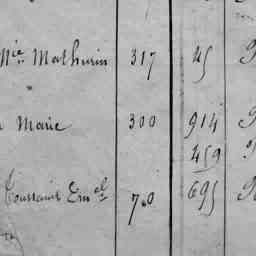 Nie Mathurin 317 45 P
Marie 300 914 P
459
Toussaint Emel 700 695 P